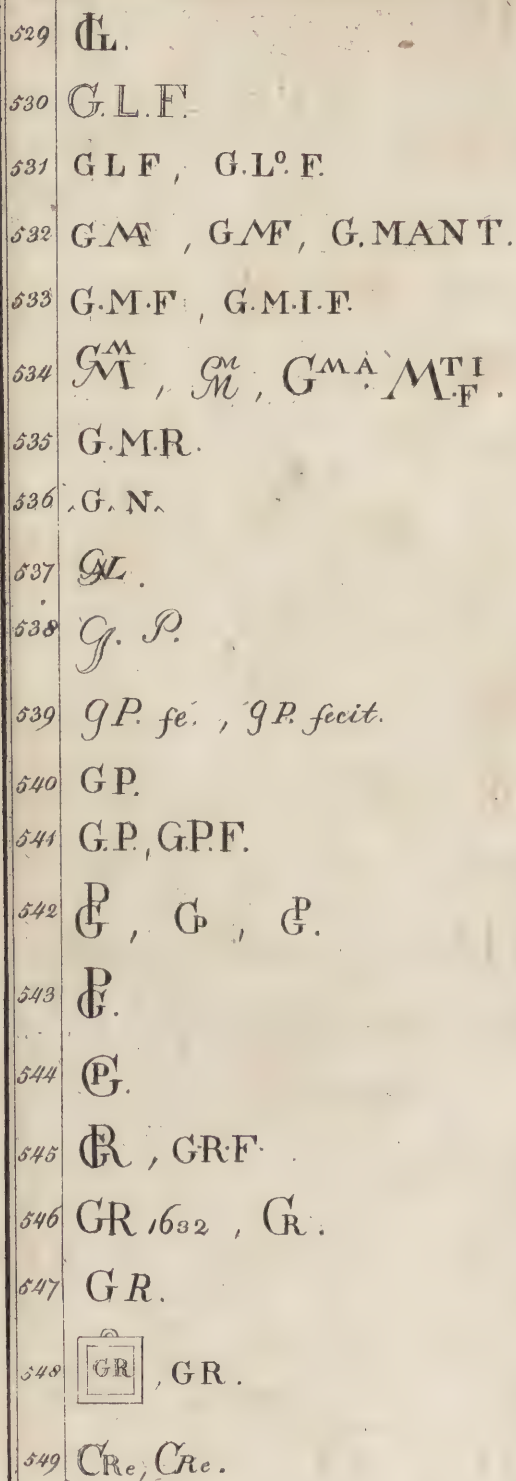 529 GL.
530 G.L.F.
531 GLF, G.Lº.F.
532 GMF, GMF, G.MANT.
533 G.M.F, G.M.I.F.
534 GMM, GMM, GMA. MTI.F.
535 G.M.R.
536 G. N.
537 GNL.
538 G. P.
539 gP. fe., gP. fecit.
540 GP.
541 G.P., G.P.F.
542 GP, GP, GP.
543 GP.
544 GP.
545 GR, G.R.F.
546 GR 1632, GR.
547 GR.
548 GR, GR.
549 CRe, CRe.